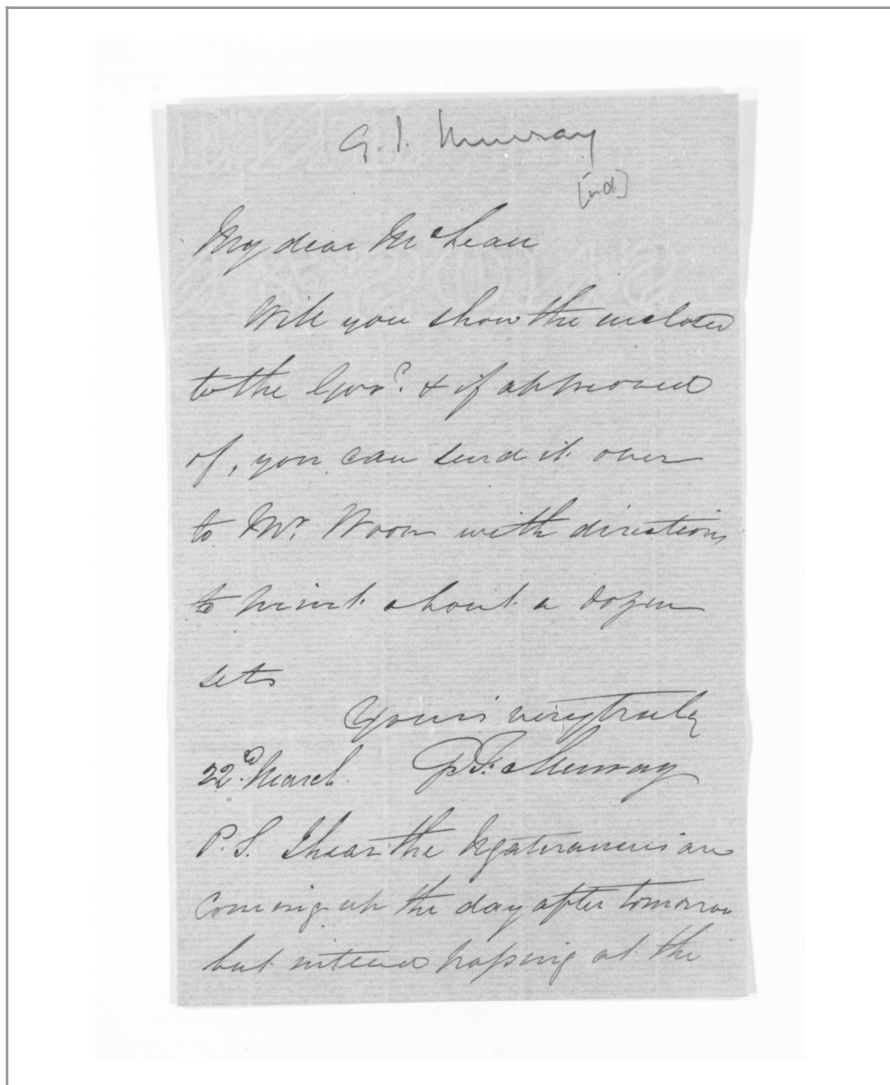 G. I. Murray
[nd]
My dear McLean
Will you show the enclosed
to the Govr. & if approved
of, you can send it over
to Mr. Woon with directions
to print about a dozen
sets
Yours very truly
22d. March. Murray
P.S. I hear the Ngateraueru are
coming up the day after tomorrow
but intend passing at the